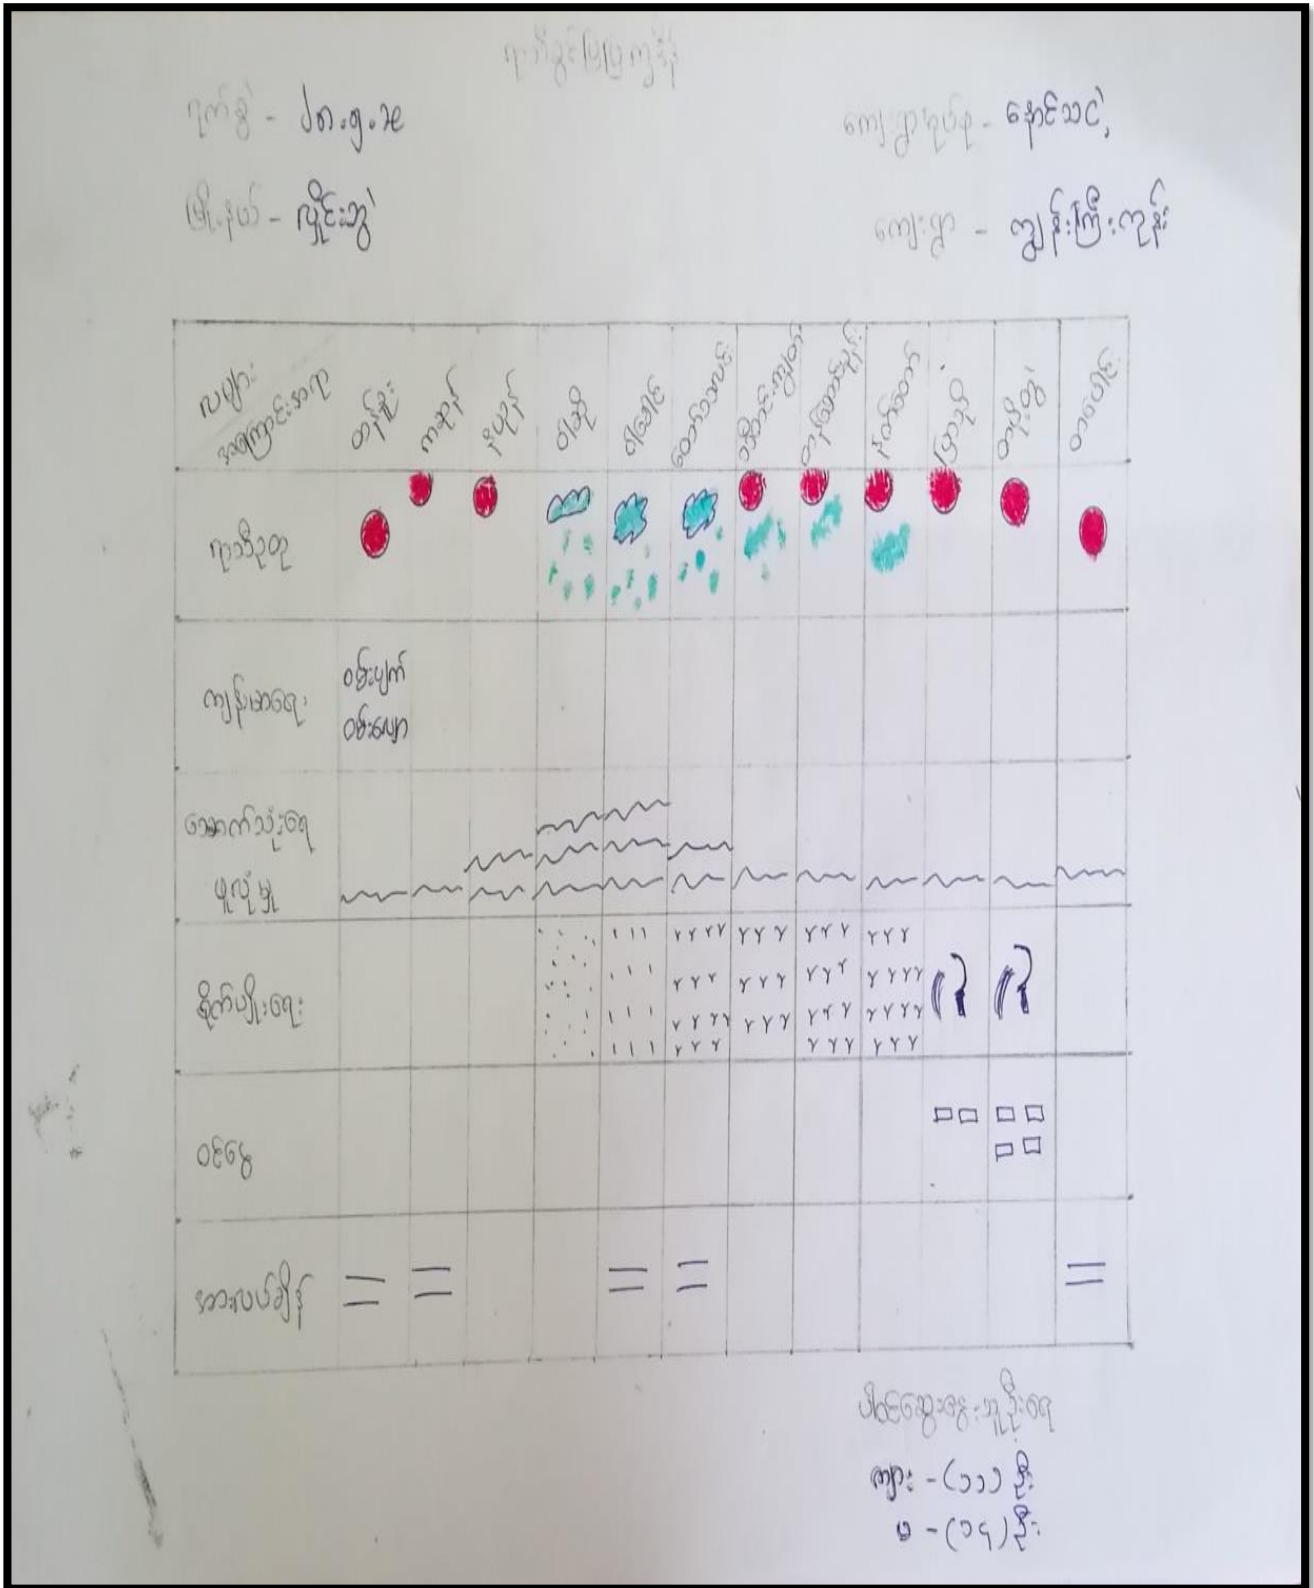 ရာသီခွင်ပြပြက္ခဒိန်
ရက်စွဲ - ၂၈.၅.၁၉ ကျေးရွာအုပ်စု - နောင်သငဲ့
မြို့နယ် - လှိုင်းဘွဲ ကျေးရွာ - ကျွန်းကြီးကုန်း
လများ
အကြောင်းအရာ
တန်ခူး ကဆုန် နယုန် ဝါဆို ဝါခေါင် တော်သလင်း သီတင်းကျွတ် တန်ဆောင်မုန်း နတ်တော် ပြာသို တပို့တွဲ တပေါင်း
ရာသီဥတု
ကျန်းမာရေး
ဝမ်းပျက်
ဝမ်းလျော
သောက်သုံးရေ
ဖူလုံမှု
စိုက်ပျိုးရေး
ဝင်ငွေ
အားလပ်ချိန်
ပါဝင်ဆွေးနွေးသူဦးရေ
ကျား - (၁၁) ဦး
မ - (၁၄) ဦး